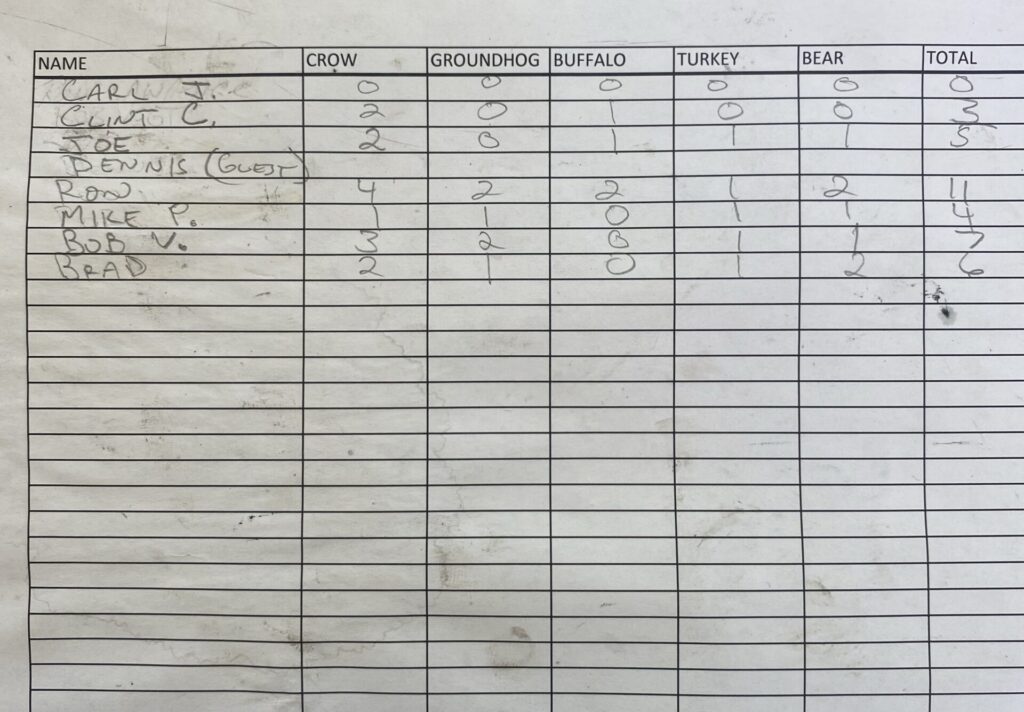 NAME CROW GROUNDHOG BUFFALO TURKEY BEAR TOTAL
CARL J. 0 0 0 0 0 0
CLINT C. 2 0 1 0 0 3
JOE 2 0 1 1 1 5
DENNIS (GUEST)
RON 4 2 2 1 2 11
MIKE P. 1 1 0 1 1 4
BOB V. 3 2 0 1 1 7
BRAD 2 1 0 1 2 6